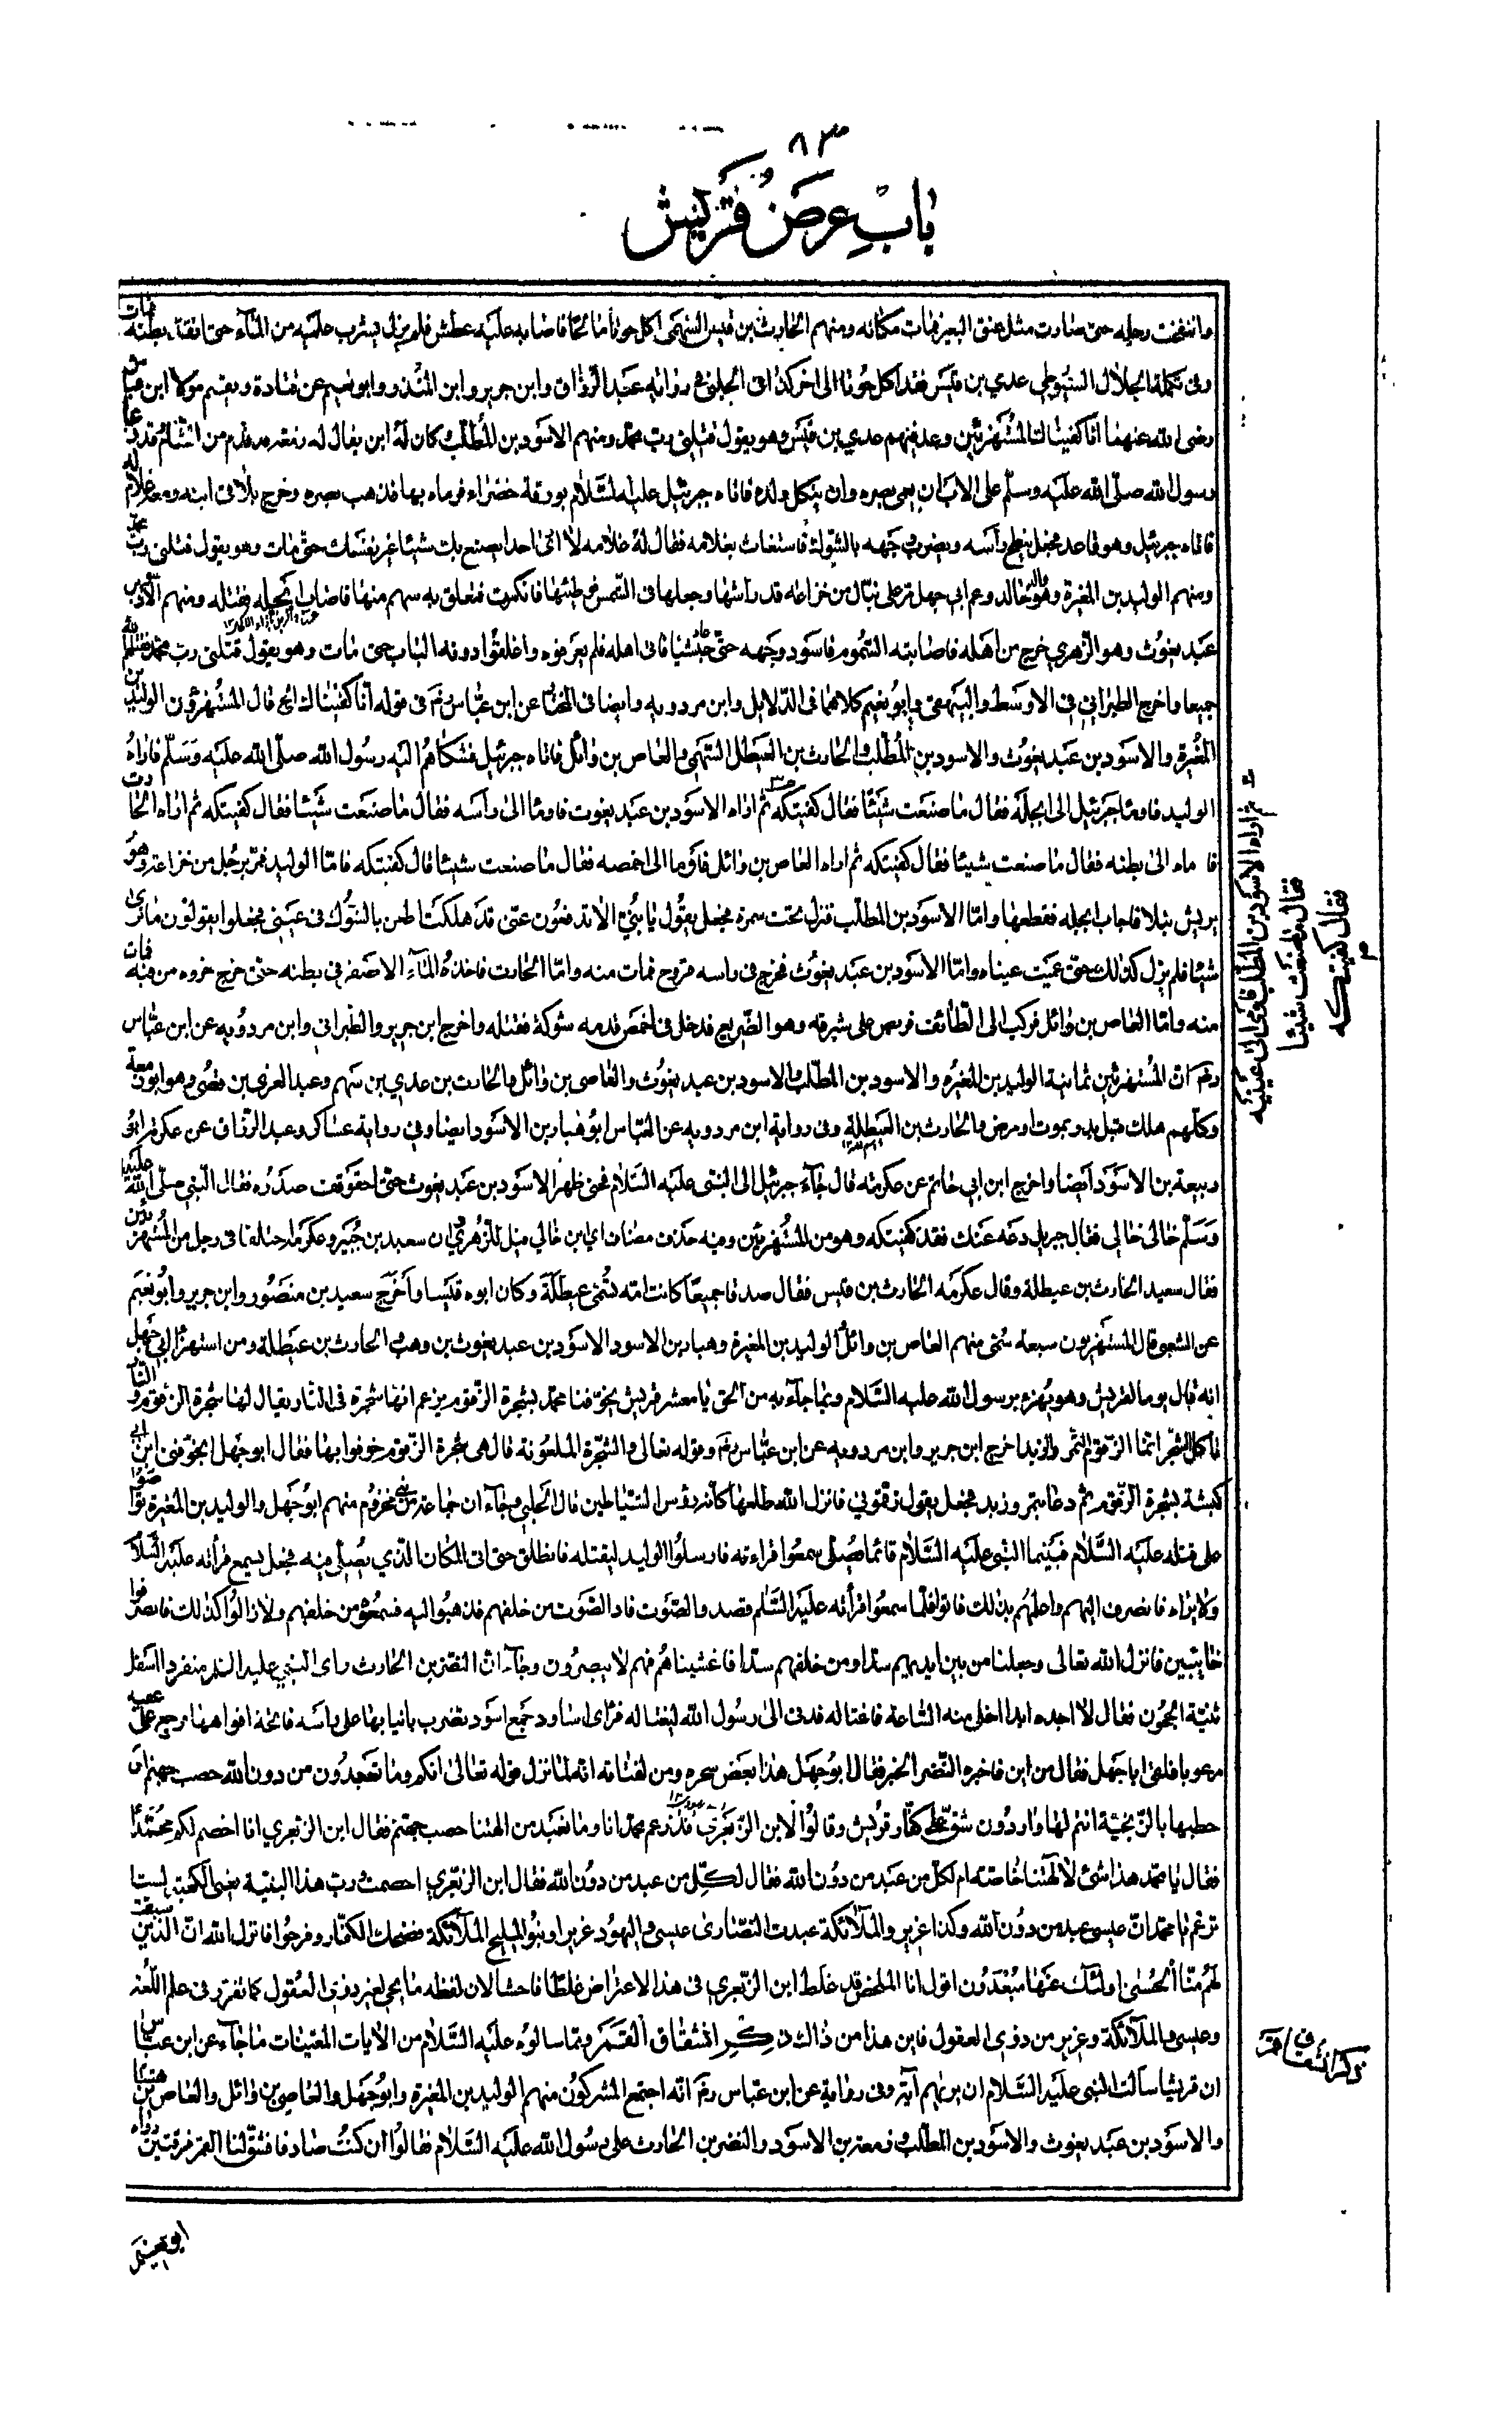 ٨٣
باب عرض قريش
وانتفخت رجله حتى صارت مثل عنق البعير فمات مكانه ومنهم الحارث بن قيس السهمي اكل حوتا مالحا فاصابه عليه عطش فلم يزل يشرب عليه من المآء حتى انقدّ بطنه فمات
وفي تكملة الجلال السيوطي عدي بن قيس فقد اكل حوتا الى اخر كذا في الجلبي في رواية عبد الرزاق وابن جرير وابن المنذر وابو نعيم عن قتادة ومقسم مولا ابن عباس
رضى الله عنهما انا كفيناك المستهزئين وعد فيهم عدي بن قيس وهو يقول قتلني رب محمد ومنهم الاسود بن المطلب كان له ابن يقال له زمعه قدم من الشام قد دعا
رسول الله صلّى الله عليه وسلّم على الاب ان يعمى بصره وان يثكل ولده فاتاه جبرئيل عليه السّلام بورقة خضراء فرماه بها فذهب بصره وخرج يلاقى ابنه ومعه غلام له
فاتاه جبرئيل وهو قاعد فجعل ينطح رأسه ويضرب وجهه بالشوك فاستغاث بغلامه فقال له غلامه لا ارى احدا يصنع بك شيئا غير نفسك حتى مات وهو يقول قتلني رب محمد
ومنهم الوليد بن المغيرة وهو والد خالد وعم ابي جهل مر على نبّال من خزاعه قد راشها وجعلها في الشمس فوطئها فانكسرت فتعلق به سهم منها فاصاب اكحله فقتله ومنهم الاسود بن
عبد يغوث وهو الزهري خرج من اهله فاصابته السموم فاسود وجهه حتى عاد حبشيا فاتى اهله فلم يعرفوه واغلقوا دونه الباب حتى مات وهو يقول قتلني رب محمد فقتلهم الله
جميعا واخرج الطبراني في الاوسط والبيهقي وابو نعيم كلاهما في الدلايل وابن مردويه وايضا في المختارة عن ابن عباس رضي في قوله انا كفيناك الخ قال المستهزؤن الوليد بن
المغيرة والاسود بن عبد يغوث والاسود بن المطلب والحارث بن العيطل السهمي والعاص بن وائل فاتاه جبرئيل فشكاهم اليه رسول الله صلّى الله عليه وسلّم فاراه
الوليد فاومأ جبرئيل الى ابجله فقال ما صنعت شيئا فقال كفيتكه ثم اراه الاسود بن عبد يغوث فاومأ الى رأسه فقال ما صنعت شيئا فقال كفيتكه ثم اراه الحارث
فاوماء الى بطنه فقال ما صنعت شيئا فقال كفيتكه ثم اراه العاص بن وائل فاوما الى اخمصه فقال ما صنعت شيئا قال كفيتكه فامّا الوليد فمرّ برجل من خزاعة وهو
يريش نبلا فاصاب ابجله فقطعها وامّا الاسود بن المطلب فنزل تحت سمرة فجعل يقول يا بنيّ الا تدفعون عنّى قد هلكت اطعن بالشوك في عيني فجعلوا يقولون ما نرى
شيئا فلم يزل كذلك حتى عميت عيناه وامّا الاسود بن عبد يغوث فخرج في راسه قروح فمات منه وامّا الحارث فاخذه المآء الاصفر في بطنه حتى خرج خروه من فيه فمات
منه وامّا العاص بن وائل فركب الى الطائف فربض على شبرقه وهو الضريع فدخل في اخمص قدمه شوكة فقتله واخرج ابن جرير والطبراني وابن مردويه عن ابن عباس
رضي ان المستهزئين ثمانية الوليد بن المغيرة والاسود بن المطلب والاسود بن عبد يغوث والعاصي بن وائل والحارث بن عدي بن سهم وعبد العزى بن قصي وهو ابو زمعة
وكلهم هلك قبل بدر بموت او مرض والحارث بن العيطلة وفي رواية ابن مردويه عن العباس ابو هبار بن الاسود ايضا وفي رواية عساكر وعبد الرزاق عن عكرمة
ربيعة بن الاسود ايضا واخرج ابن ابي حاتم عن عكرمة قال جآء جبرئيل الى النبي عليه السّلام فحنى ظهر الاسود بن عبد يغوث حتى احقوقف صدره فقال النبي صلّى الله عليه
وسلّم خالى خالى فقال جبريل دعه عنك فقد كفيتكه وهو من المستهزئين وفيه حذف مضاف اي ابن خالي قيل للزهري ان سعيد بن جبير وعكرمة اختلفا في رجل من المستهزئين
فقال سعيد الحارث بن عيطلة وقال عكرمه الحارث بن قيس فقال صدقا جميعا كانت امّه تسمّى عيطلة وكان ابوه قيسا واخرج سعيد بن منصور وابن جرير وابو نعيم
عن الشعبي قال المستهزيون سبعة سُمّى منهم العاص بن وائل الوليد بن المغيرة وهبار بن الاسود الاسود بن عبد يغوث بن وهب الحارث بن عيطلة ومن استهزاء ابي جهل
انه قال يوما لقريش وهو يهزء برسول الله عليه السّلام وبما جآء به من الحق يا معشر قريش يخوّفنا محمد بشجرة الزقوم يزعم انها شجرة في النار يقال لها شجرة الزقوم والنار
تاكل الشجر انما الزقوم التمر والزبد اخرج ابن جرير وابن مردويه عن ابن عباس رضي وقوله تعالى والشجرة الملعونة قال هي شجرة الزقوم خوفوا بها فقال ابو جهل ايخوّفني ابن ابي
كبشة بشجرة الزقوم ثم دعا بتمر وزبد فجعل يقول زقموني فانزل الله طلعها كأنه رؤس الشياطين قال الحلبي وجآء ان جماعة من بني مخزوم منهم ابو جهل والوليد بن المغيرة تواصوا
على قتله عليه السّلام فبينما النبي عليه السّلام قائما يصلى سمعوا قراءته فارسلوا الوليد ليقتله فانطلق حتى اتى المكان الذي يُصلّى فيه فجعل يسمع قرأته عليه السلام
ولا يراه فانصرف اليهم واعلمهم بذلك فاتوا فلما سمعوا قرأته عليه السّلام قصدوا الصوت فاذا الصوت من خلفهم فذهبوا اليه فسمعوه من خلفهم ولا زالوا كذلك فانصرفوا
خائبين فانزل الله تعالى وجعلنا من بين ايديهم سدا ومن خلفهم سدا فاغشيناهم فهم لا يبصرون وجآء ان النضر بن الحارث راى النبي عليه السلم منفردا اسفل
ثنية الحجون فقال لا اجده ابدا اخلى منه الساعة فاغتاله فدنى الى رسول الله ليغتاله فرأى اساود جميع اسود تضرب بانيابها على راسه فاتحة افواهها فرجع على عقبه
مرعوبا فلقى ابا جهل فقال من اين فاخبره النضر الخبر فقال ابو جهل هذا بعض سحره ومن لقتاته انه لما نزل قوله تعالى انكم وما تعبدون من دون الله حصب جهنم اى
حطبها بالزنجيّة انتم لها واردون شق على كفّار قريش وقالوا لابن الزبعري قد زعم محمد انا وما نعبد من الهتنا حصب جهنم فقال ابن الزبعري انا اخصم لكم محمّدا
فقال يا محمد هذا شئ لآلهتنا خاصة ام لكل من عبد من دون الله فقال لكل من عبد من دون الله فقال ابن الزبعري اخصمت ورب هذا البنية يعني الكعبة الست
تزعم يا محمد ان عيسى عبد من دون الله وكذا عزير والملائكة عبدت النصارى عيسى واليهود عزيرا وبنو المليح الملائكة فضحك الكفّار وفرحوا فانزل الله ان الذين سبقت
لهم منا الحسنى اولئك عنها مبعدون اقول انا الملخص قد غلط ابن الزبعري في هذا الاعتراض غلطا فاحشا لان لفظه ما يجئ لغير ذوي العقول كما تقرر في علم اللغة
وعيسى والملآئكة وعزير من ذوي العقول فاين هذا من ذاك ذكر انشقاق القمر ومما سالوه عليه السّلام من الايات المعينات ما جآء عن ابن عباس
ان قريشا سالت النبي عليه السّلام ان يريهم آية وفي رواية عن ابن عباس رضي انه اجتمع المشركون منهم الوليد بن المغيرة وابو جهل والعاصي بن وائل والعاص بن هشام
والاسود بن عبد يغوث والاسود بن المطلب وزمعة بن الاسود والنضر بن الحارث على رسول الله عليه السّلام فقالوا ان كنت صادقا فشقّ لنا القمر فرقتين رواه
ابو نعيم
ثم اراه الاسود بن المطلب فاومى الى عينيه
فقال ما صنعت شيئا
فقال كفيتكه
ذكر انشقاق القمر